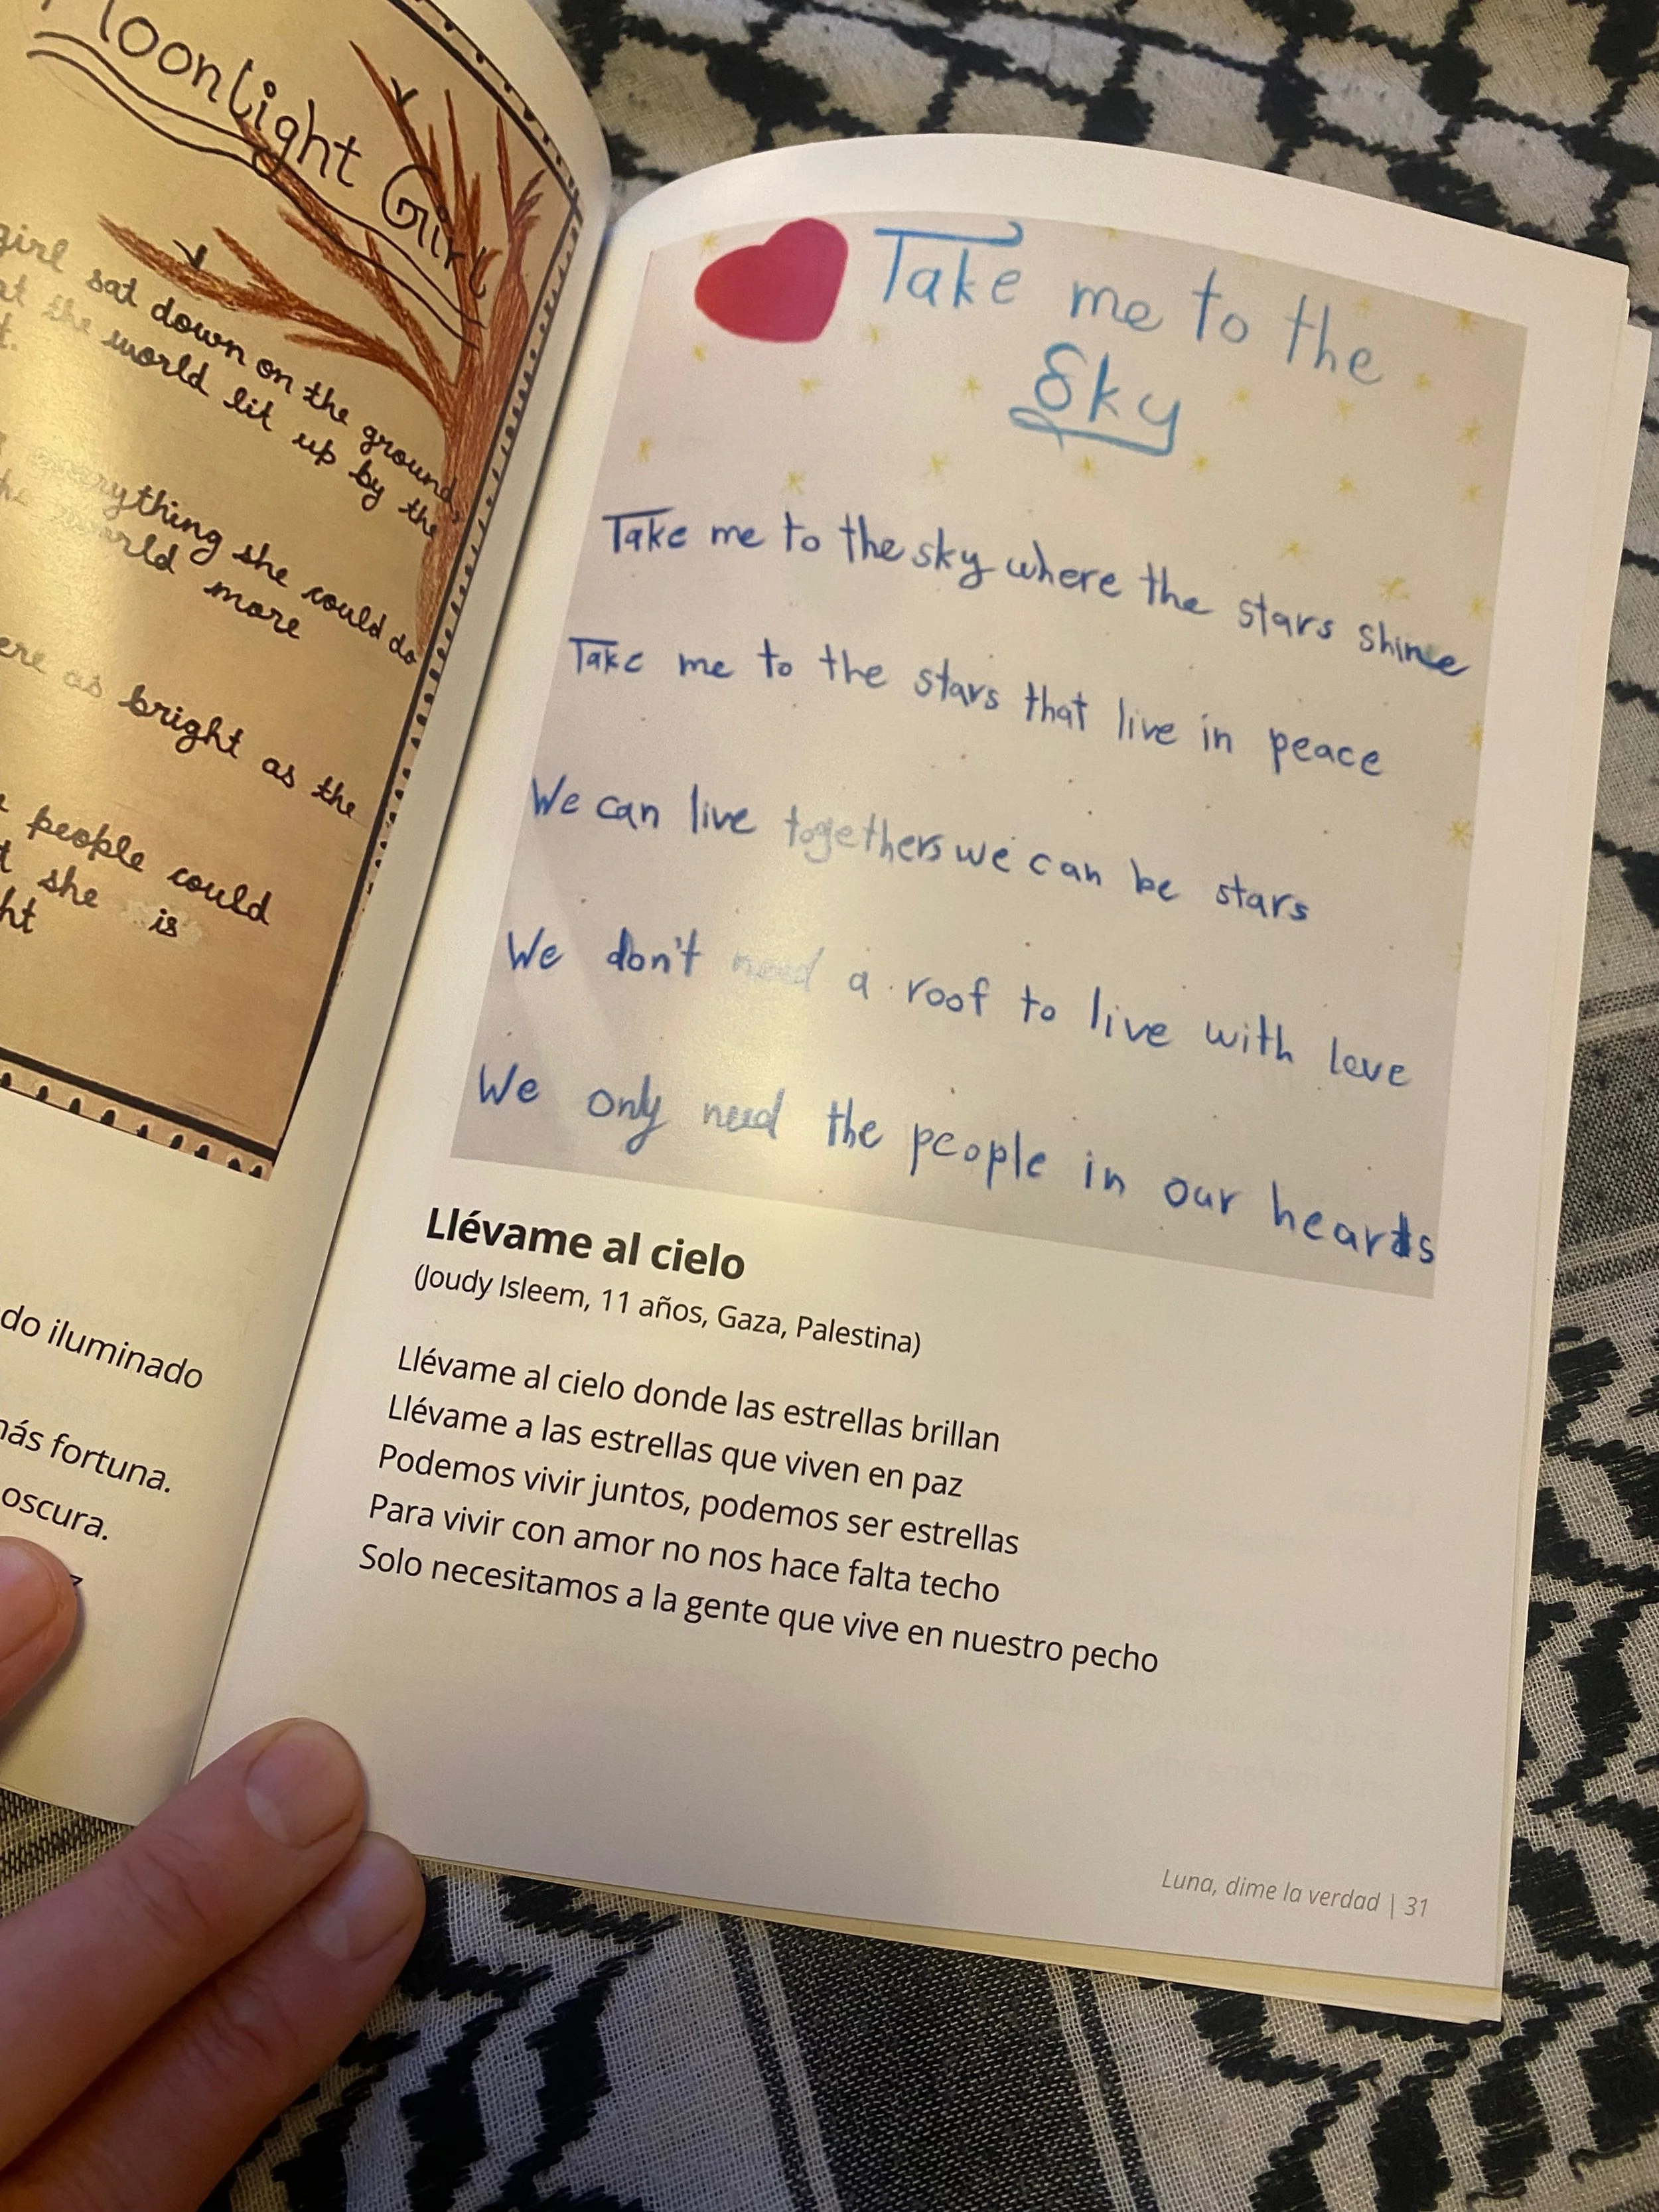 Moonlight Girl
girl sat down on the ground,
at the world lit up by the
everything she could do
world more
ere as bright as the
people could
t she is
ht
do iluminado
más fortuna.
oscura.
z
Take me to the
Sky
Take me to the sky where the stars shine
Take me to the stars that live in peace
We can live togethers we can be stars
We don't need a roof to live with love
We only need the people in our hearts
Llévame al cielo
(Joudy Isleem, 11 años, Gaza, Palestina)
Llévame al cielo donde las estrellas brillan
Llévame a las estrellas que viven en paz
Podemos vivir juntos, podemos ser estrellas
Para vivir con amor no nos hace falta techo
Solo necesitamos a la gente que vive en nuestro pecho
Luna, dime la verdad | 31